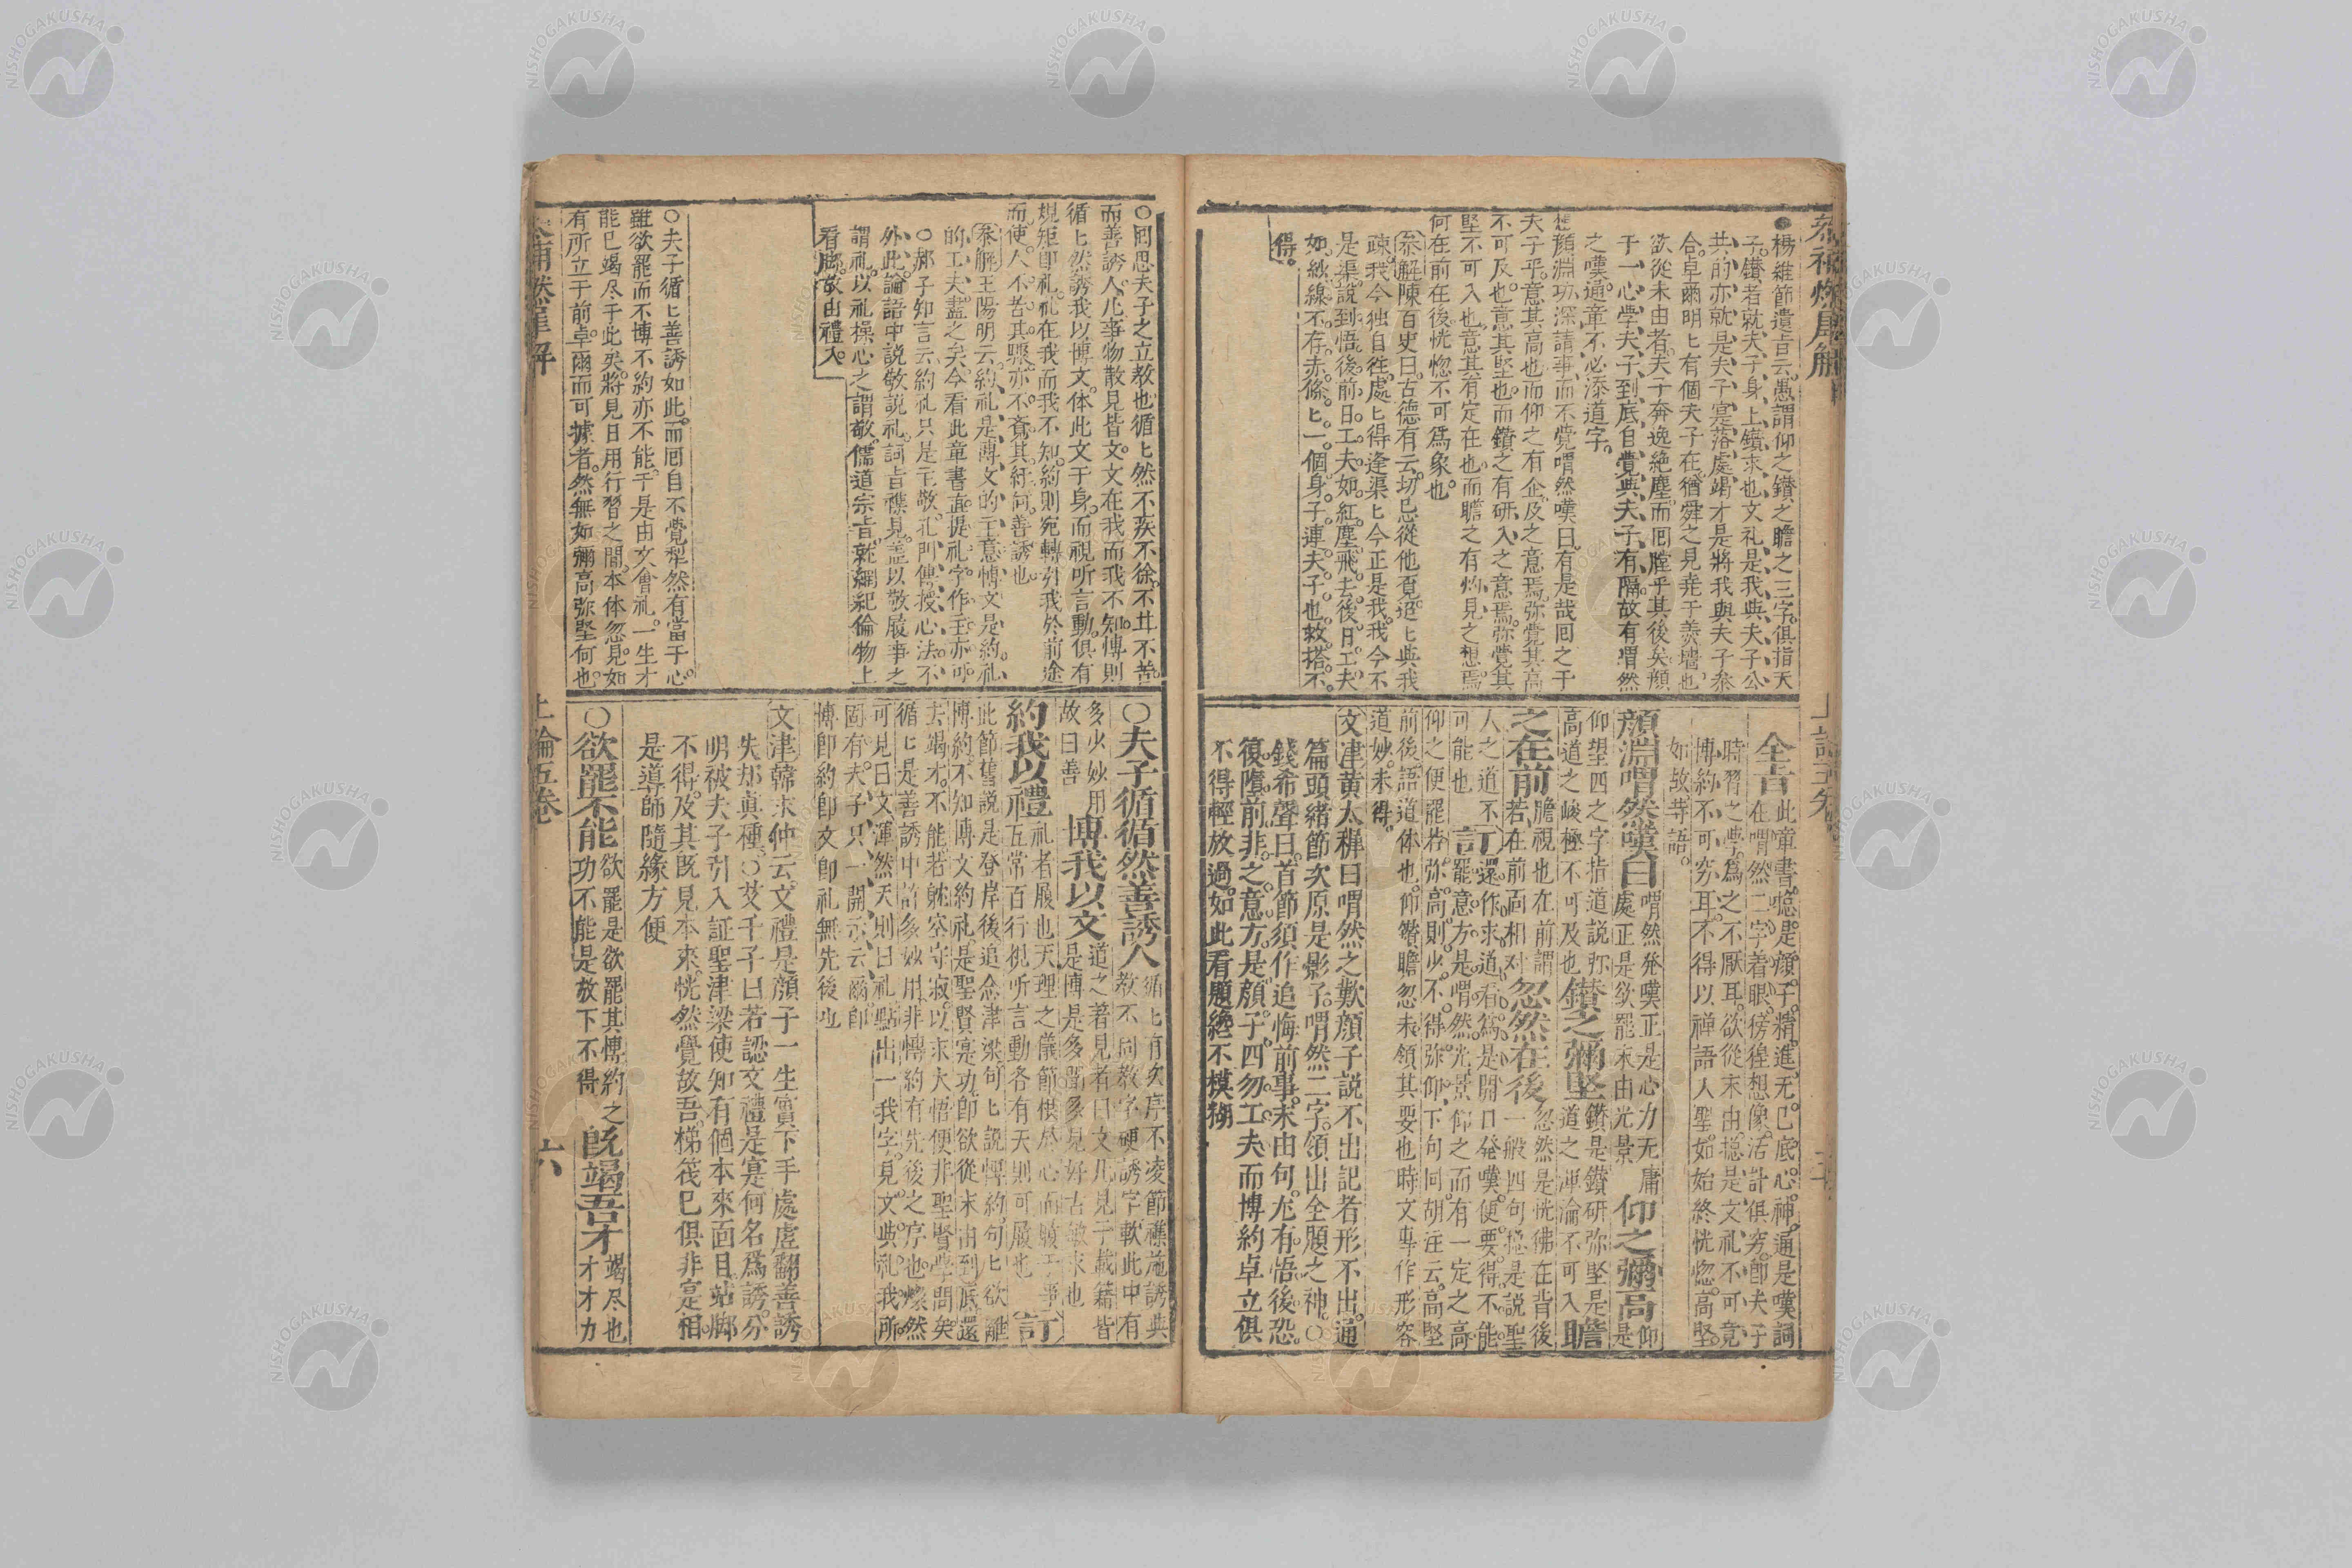 ●楊維節遺旨云愚謂仰之鑽之瞻之三字俱指天
子鑽者就夫子身上鑽求也文礼是我與夫子公
共的亦就是夫子寔落處竭才是將我與夫子叅
合卓爾明〻有個夫子在猶舜之見尭于羙墻也
欲從末由者夫子奔逸絶塵而囘瞠乎其後矣顔
于一心學夫子到底自覺與夫子有隔故有喟然
之嘆通章不必添道字
想顔淵功深請事而不覺喟然嘆曰有是哉囘之于
夫子乎意其高也而仰之有企及之意焉弥覺其高
不可及也意其堅也而鑽之有研入之意焉弥覺其
堅不可入也意其有定在也而瞻之有灼見之想焉
何在前在後恍惚不可為象也
叅解陳百史曰古德有云切忌從他覓迢〻與我
疎我今独自徃處〻得逢渠〻今正是我我今不
是渠説到悟後前日工夫如紅塵飛去後日工夫
如紗線不存赤條〻一個身子連夫子也救搭不
得
全旨此章書總是顔子精進无已底心神通是嘆詞
在喟然二字着眼徬徨想像活計俱窮即夫子
時習之學為之不厭耳欲從末由總是文礼不可竟
博約不可穷耳不得以禅語人聖如始終恍惚高堅
如故等語
顔淵喟然嘆曰喟然發嘆正是心力无庸
處正是欲罷末由光景仰之彌高仰是
仰望四之字指道説弥
高道之峻極不可及也鑽之彌堅鑽是鑽研弥堅是
道之渾淪不可入瞻
之在前瞻視也在前謂
若在前面相对忽然在後忽然是恍彿在背後
一般四句總是説聖
人之道不
可能也訂還作求道看為是開口発嘆便要得不能
罷意方是喟然光景仰之而有一定之高
仰之便罷若弥高則少不得弥仰下句同胡注云高堅
前後語道体也仰鑽瞻忽未領其要也時文專作形容
道妙未得
文津黄太穉曰喟然之歎顔子説不出記者形不出通
篇頭緒節次原是影子喟然二字領出全題之神○
錢希聲曰首節須作追悔前事末由句尤有悟後恐
復墮前非之意方是顔子四勿工夫而博約卓立俱
不得輕放過如此看題絶不模糊
○囘思夫子之立教也循〻然不疾不徐不甘不苦
而善誘人凢事物散見皆文文在我而我不知博則
循〻然誘我以博文体此文于身而視听言動俱有
規矩即礼礼在我而我不知約則宛轉引我於前途
而使人不苦其驟亦不吝其紆何善誘也
叅解王陽明云約礼是博文的主意博文是約礼
的工夫盡之矣今看此章書直提礼字作主亦可
○郝子知言云約礼只是主敬孔門傳授心法不
外此論語中説敬説礼詞旨襍見盖以敬履事之
謂礼以礼操心之謂敬儒道宗旨就綱紀倫物上
看脚故由禮入
○夫子循〻善誘如此而囘自不覺犁然有當于心
雖欲罷而不博不約亦不能于是由文會礼一生才
能已竭尽于此矣將見日用行習之間本体忽見如
有所立于前卓爾而可據者然無如彌高弥堅何也
○夫子循循然善誘人循〻有次序不凌節襍施誘典
教不同教字硬誘字軟此中有
多少妙用
故曰善博我以文道之著見者曰文凢見于載籍皆
是博是多聞多見好古敏求也
約我以禮礼者履也天理之儀節懐於心而履于事
五常百行視听言動各有天則可履也訂
此節舊説是登岸後追念津梁句〻説博約句〻欲離
博約不知博文約礼是聖賢寔功即欲從末由到底還
去竭才不能若躭空守寂以末大悟便非聖賢學問矣
循〻是善誘中許多妙用非博約有先後之序也燦然
可見曰文渾然天則曰礼點出一我字見文與礼我所
固有夫子只一開示云爾即
博即約即文即礼無先後也
文津韓求仲云文禮是顔子一生實下手處虚翻善誘
失却眞種○艾千子曰若認文禮是寔何名爲誘分
明被夫子引入証聖津梁使知有個本來面目站脚
不得及其既見本來恍然覺故吾梯筏已俱非寔相
是導師隨緣方便
○欲罷不能欲罷是欲罷其博約之
功不能是放下不得旣竭吾才竭尽也
才才力
上論五卷
六